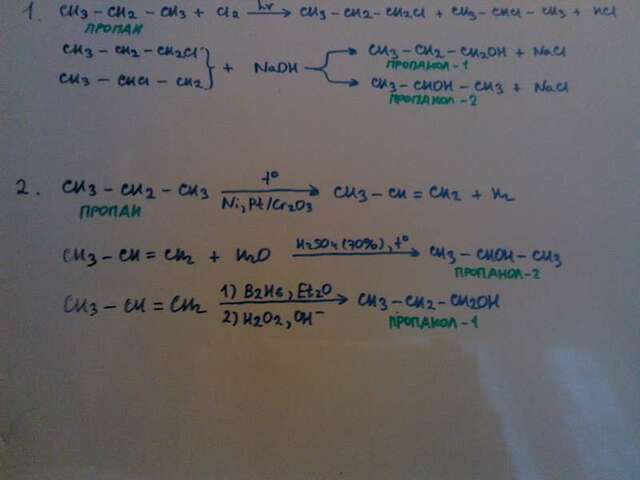 1. CH3 – CH2 – CH3 + Cl2 hν→ CH3 – CH2 – CH2Cl + CH3 – CHCl – CH3 + HCl
ПРОПАН
CH3 – CH2 – CH2Cl
CH3 – CHCl – CH2
} + NaOH
CH3 – CH2 – CH2OH + NaCl
ПРОПАНОЛ-1
CH3 – CHOH – CH3 + NaCl
ПРОПАНОЛ-2
2. CH3 – CH2 – CH3 t° → CH3 – CH = CH2 + H2
Ni, Pt/Cr2O3
ПРОПАН
CH3 – CH = CH2 + H2O H2SO4 (70%), t° → CH3 – CHOH – CH3
ПРОПАНОЛ-2
CH3 – CH = CH2 1) B2H6, Et2O → CH3 – CH2 – CH2OH
2) H2O2, OH⁻
ПРОПАНОЛ-1